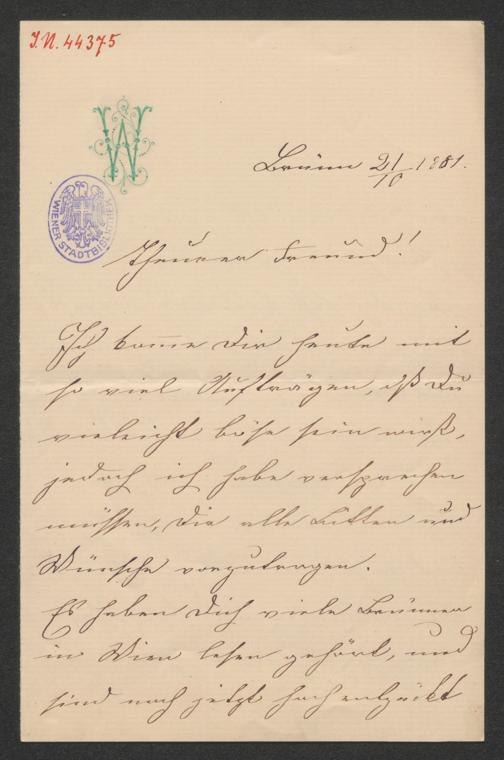 I.N. 44375
W
WIENER STADTBIBLIOTHEK
Brünn 21/10 1881.
Theurer Freund!
Ich komme Dir heute mit
so viel Aufträgen, daß Du
vieleicht böse sein wirst,
jedoch ich habe versprechen
müssen, Dir alle Bitten und
Wünsche vorzutragen.
Es haben Dich viele Brünner
in Wien lesen gehört, und
sind noch jetzt hoch entzückt